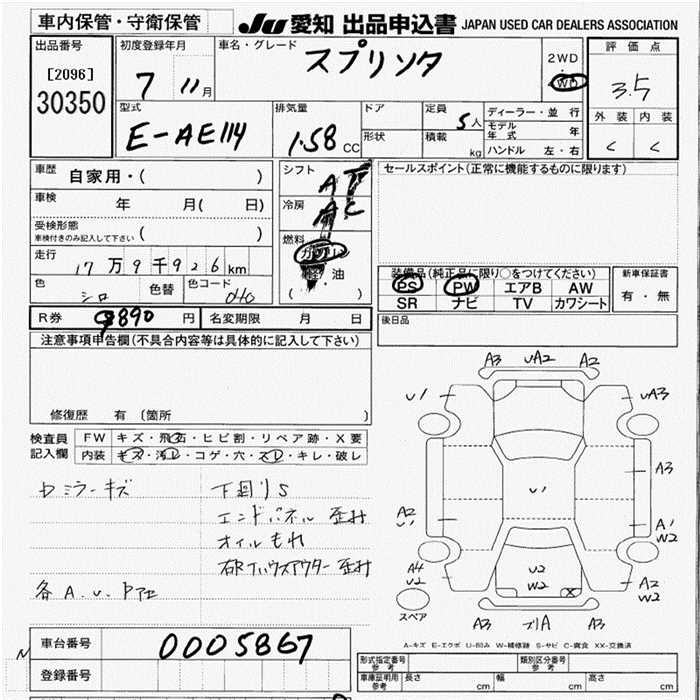 車内保管・守衛保管
JU 愛知 出品申込書 JAPAN USED CAR DEALERS ASSOCIATION
出品番号
[2096]
30350
初度登録年月
7 11月
車名・グレード
スプリンタ
2WD
・
WD
評価点
3.5
外装 内装
< <
型式
E-AE114
排気量
1.58 CC
ドア
形状
定員
5人
積載
kg
ディーラー・並行
モデル年式 年
ハンドル 左・右
車歴 自家用・( )
車検 年 月( 日)
受検形態
車検付きのみ記入して下さい ( )
走行 17万9千926km
色 シロ 色替 色コード 040
シフト AT
冷房 AC
燃料
ガソリン
軽・油
( )
セールスポイント(正常に機能するものに限ります)
装備品(純正品に限り○をつけてください)
PS PW エアB AW
SR ナビ TV カワシート
新車保証書
有・無
R券 9890円 名変期限 月 日
後日品
注意事項申告欄(不具合内容等は具体的に記入して下さい)
修復歴 有 〔箇所 〕
検査員記入欄
FW キズ・飛石・ヒビ割・リペア跡・X要
内装 キズ・汚レ・コゲ・穴・スレ・キレ・破レ
ミラーキズ
下回りS
エンドパネル歪
オイルもれ
各A.U.P
A3 UA2 A2
U1 UA3
A3
U1
A2
U1
A1
W2
A4
U2
U2
W2
X
A2
W2
スペア
A3 プリA A3
A-キズ E-エクボ U-凹み W-補修跡 S-サビ C-腐食 XX-交換済
車台番号 0005867
登録番号
N
型式指定番号
参考
類別区分番号
参考
車庫証明用
参考
長さ cm 幅 cm 高さ cm